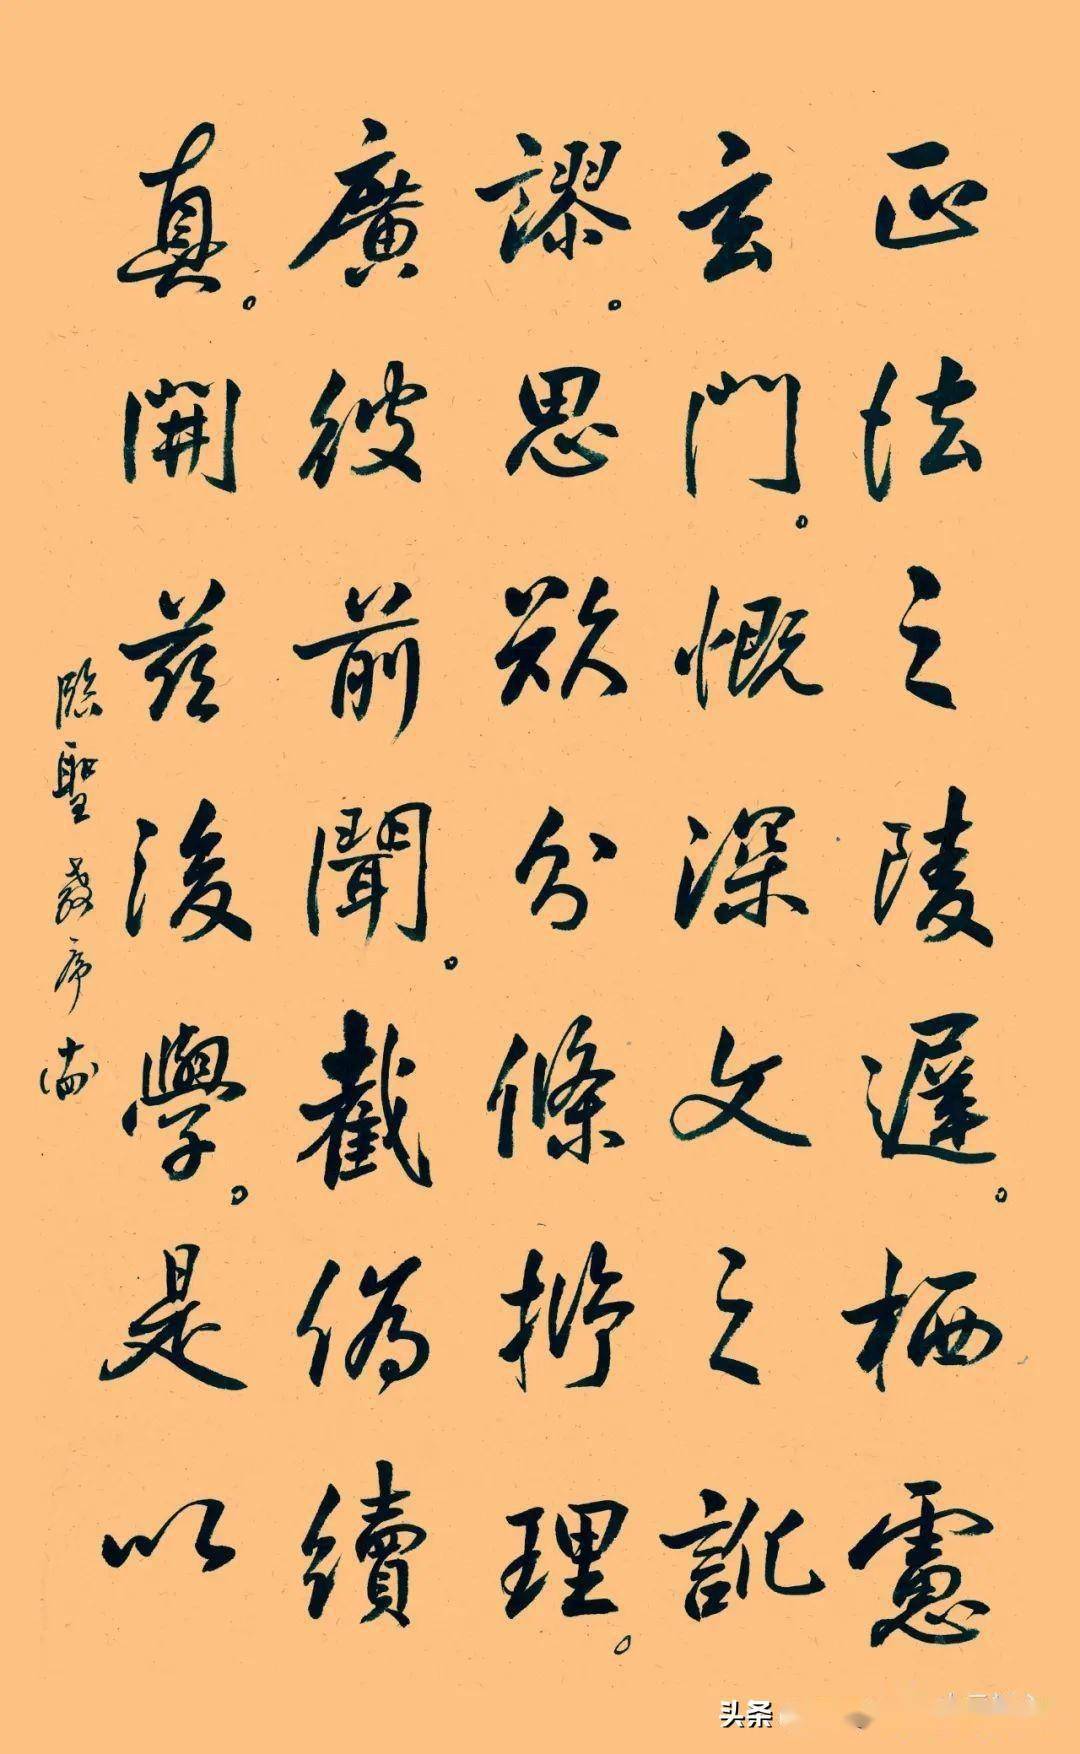 正法之陵遲。栖慮
玄門。慨深文之訛
謬。思欲分條析理。
廣彼前聞。截偽續
真。開茲後學。是以
臨聖教序
头条